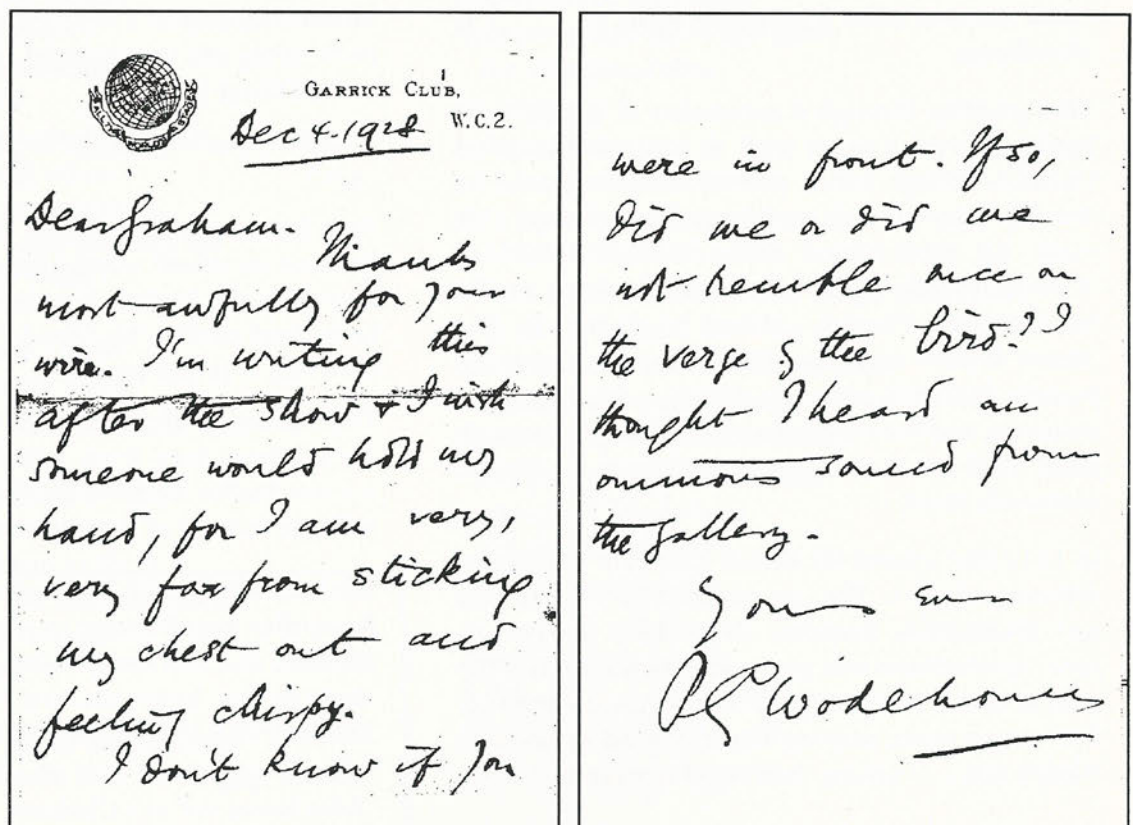 GARRICK CLUB,
W.C.2.
Dec 4. 1928
Dear Graham.
Thanks
most awfully for your
wire. I'm writing this
after the show & I wish
someone would hold my
hand, for I am very,
very far from sticking
my chest out and
feeling chirpy.
I don't know if you
were in front. If so,
did we or did we
not tremble once on
the verge of the bird? I
thought I heard an
ominous sound from
the gallery.
Yours ever
P G Wodehouse